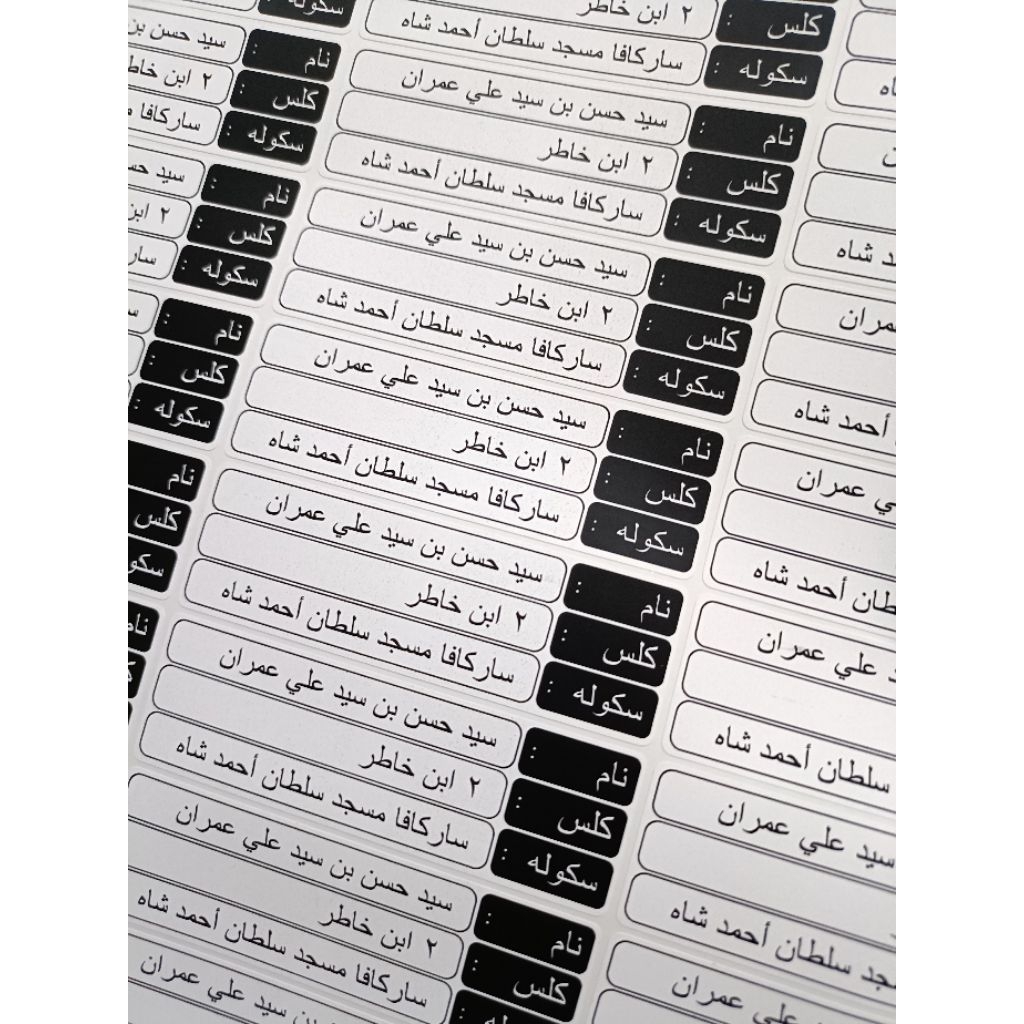 شاه
عمران
أحمد شاه
عمران
أحمد شاه
علي عمران
سلطان أحمد شاه
سيد علي عمران
سلطان أحمد شاه
علي عمران
كلس : ٢ ابن خاطر
سكوله : ساركافا مسجد سلطان أحمد شاه
نام : سيد حسن بن سيد علي عمران
كلس : ٢ ابن خاطر
سكوله : ساركافا مسجد سلطان أحمد شاه
نام : سيد حسن بن سيد علي عمران
كلس : ٢ ابن خاطر
سكوله : ساركافا مسجد سلطان أحمد شاه
نام : سيد حسن بن سيد علي عمران
كلس : ٢ ابن خاطر
سكوله : ساركافا مسجد سلطان أحمد شاه
نام : سيد حسن بن سيد علي عمران
كلس : ٢ ابن خاطر
سكوله : ساركافا مسجد سلطان أحمد شاه
نام : سيد حسن بن سيد علي عمران
كلس : ٢ ابن خاطر
سكوله : ساركافا مسجد سلطان أحمد شاه
نام : سيد حسن بن سيد علي عمران
كلس : ٢ ابن خاطر
ساركافا مسجد سلطان أحمد شاه
سيد علي عمران
سكوله :
نام : سيد حسن
كلس : ٢ ابن
سكوله : ساركافا
نام : سيد
كلس : ٢ ابن
سكوله :
نام :
كلس :
سكوله :
نام
كلس
نام